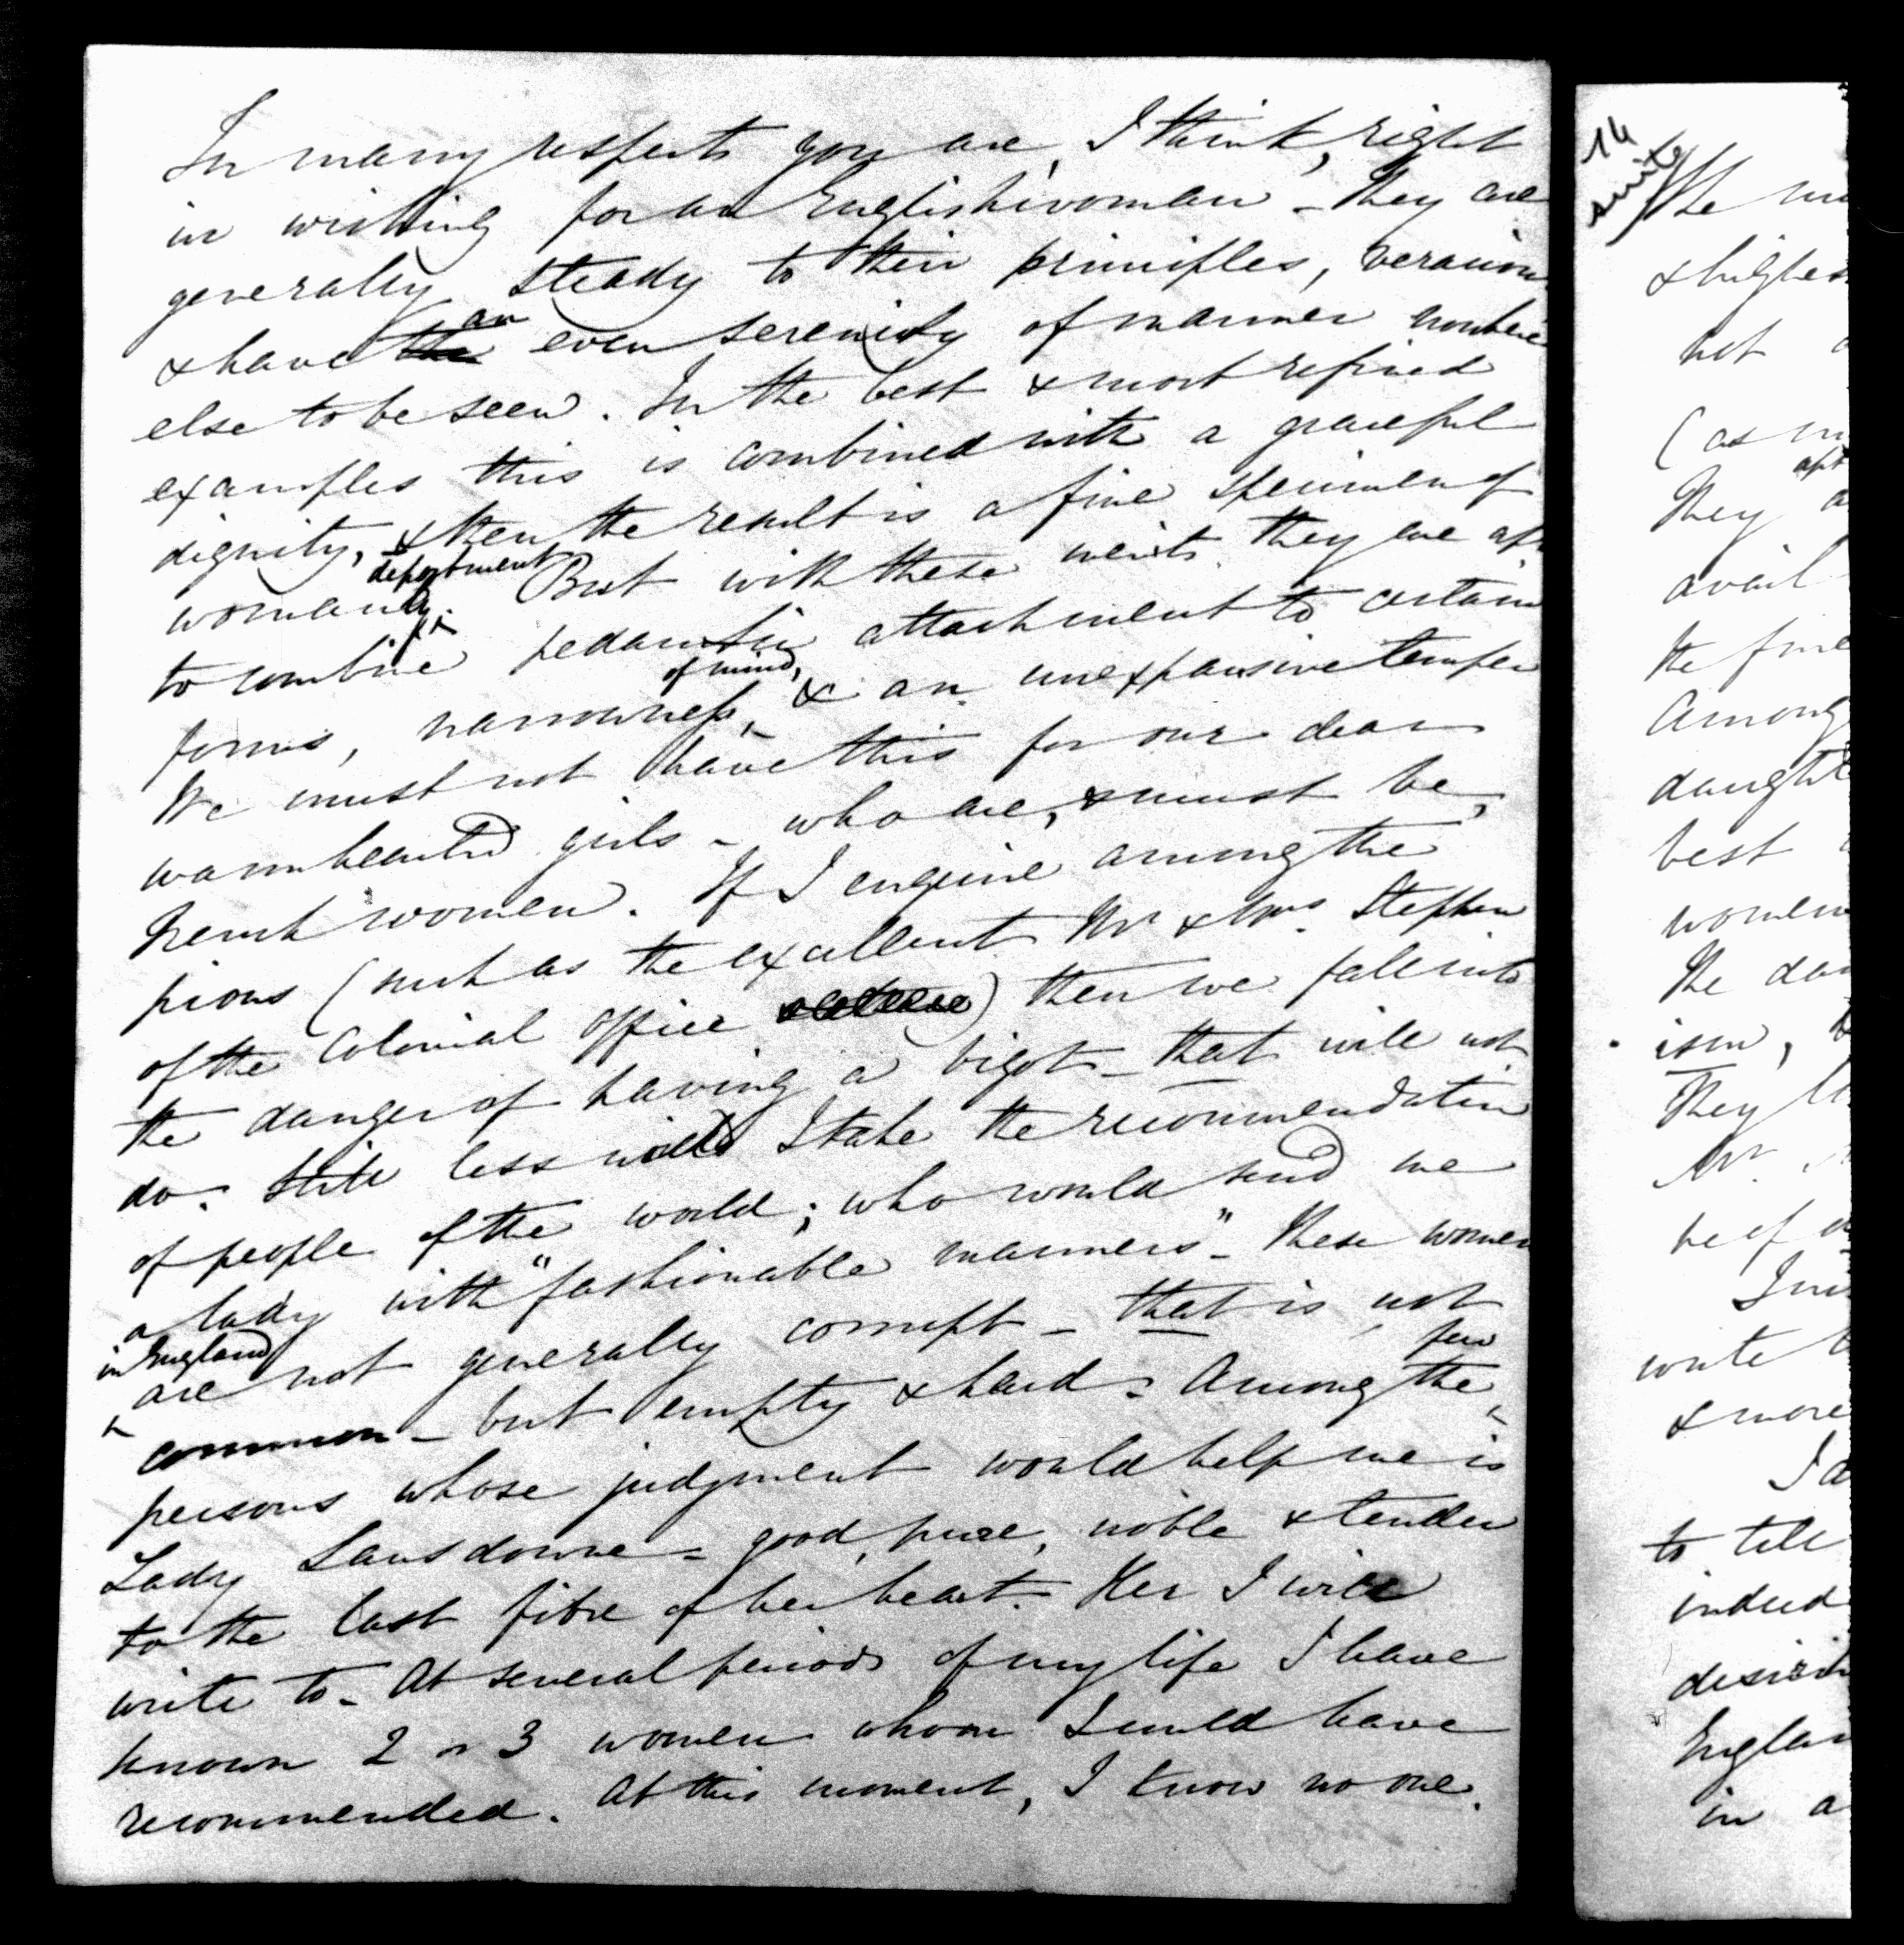 In many respects you are, I think, right
in wishing for an Englishwoman - They are
generally steady to their principles, veracious
& have the an even serenity of manner nowhere
else to be seen. In the best & most refined
examples this is combined with a graceful
dignity, & then the result is a fine specimen of
womanly deportment. But with these merits they are apt
to combine pedantic attachment to certain
forms, narrowness of mind, & an unexpansive temper
We must not have this for our dear
warmhearted girls - who are, & must be,
French women. If I enquire among the
pious (such as the excellent Mr & Mrs Stephen
of the Colonial Office) then we fall into
the danger of having a bigot - that will not
do. Still less will I take the recommendation
of people of the world; who would send me
a lady with "fashionable manners" - These women
in England are not generally corrupt - that is not
common - but empty & hard - Among the few
persons whose judgment would help me is
Lady Lansdowne - good, pure, noble & tender
to the last fibre of her heart. Her I will
write to - At several periods of my life I have
known 2 or 3 women whom I could have
recommended. At this moment, I know no one.
14
suite
The
& highest
not
(as
They apt
avail
the fine
Among
daught
best
women
The
ism,
They
Mr.
he of
write
& more
to tell
indeed
Englan
in a